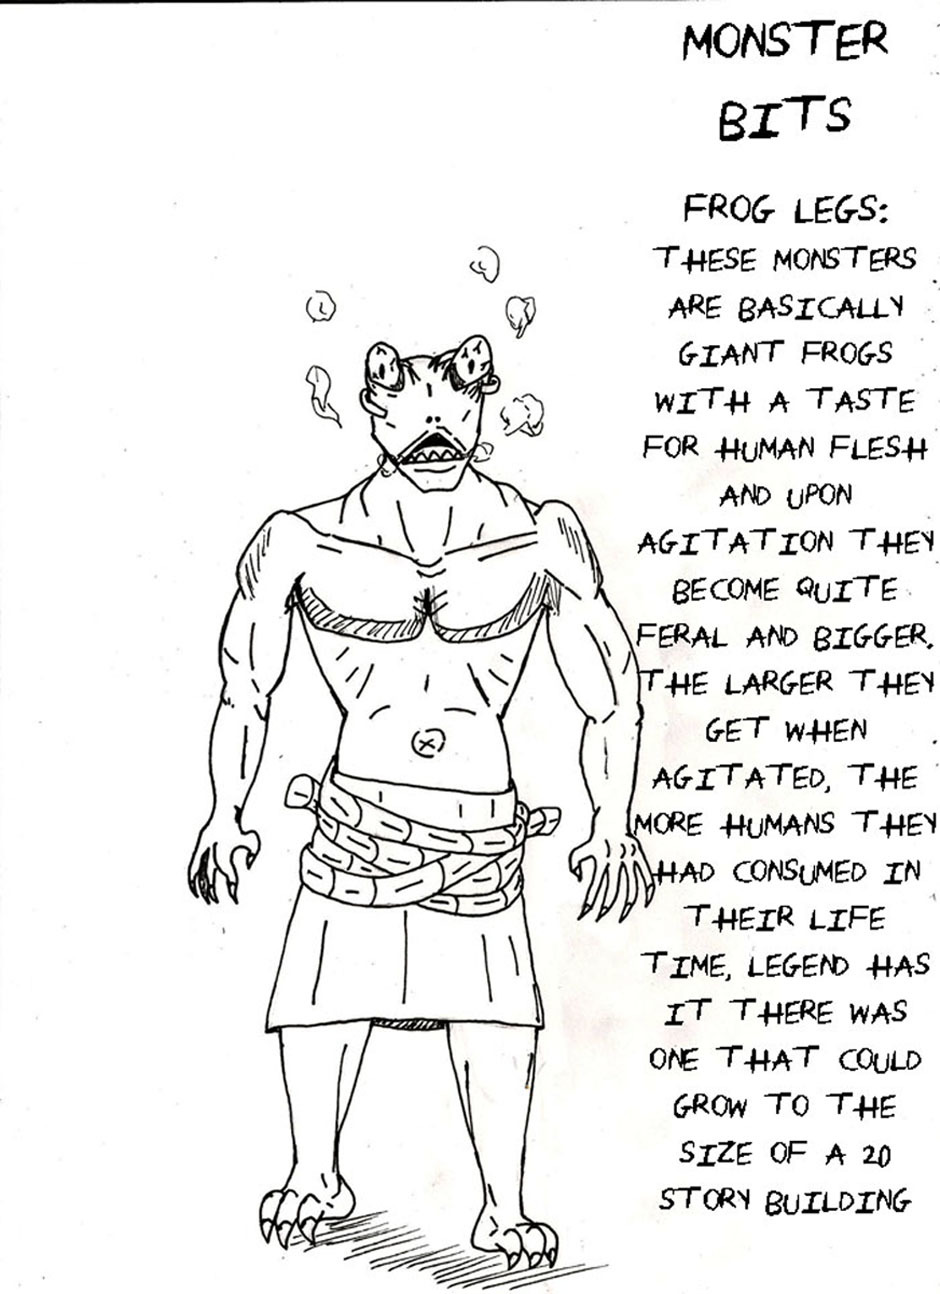 MONSTER
BITS
FROG LEGS:
THESE MONSTERS
ARE BASICALLY
GIANT FROGS
WITH A TASTE
FOR HUMAN FLESH
AND UPON
AGITATION THEY
BECOME QUITE
FERAL AND BIGGER.
THE LARGER THEY
GET WHEN
AGITATED, THE
MORE HUMANS THEY
HAD CONSUMED IN
THEIR LIFE
TIME, LEGEND HAS
IT THERE WAS
ONE THAT COULD
GROW TO THE
SIZE OF A 20
STORY BUILDING